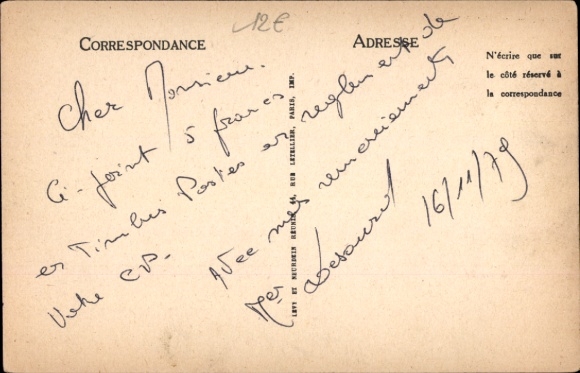 12€
CORRESPONDANCE
ADRESSE
N'écrire que sur
le côté réservé à
la correspondance
Cher Monsieur.
Ci-joint 5 francs
en Timbres Postes en reglement de
Votre CP.
Avec mes remerciements
16/11/79
LEVY ET NEURDEIN RÉUNIS, 44, RUE LETELLIER, PARIS, IMP.